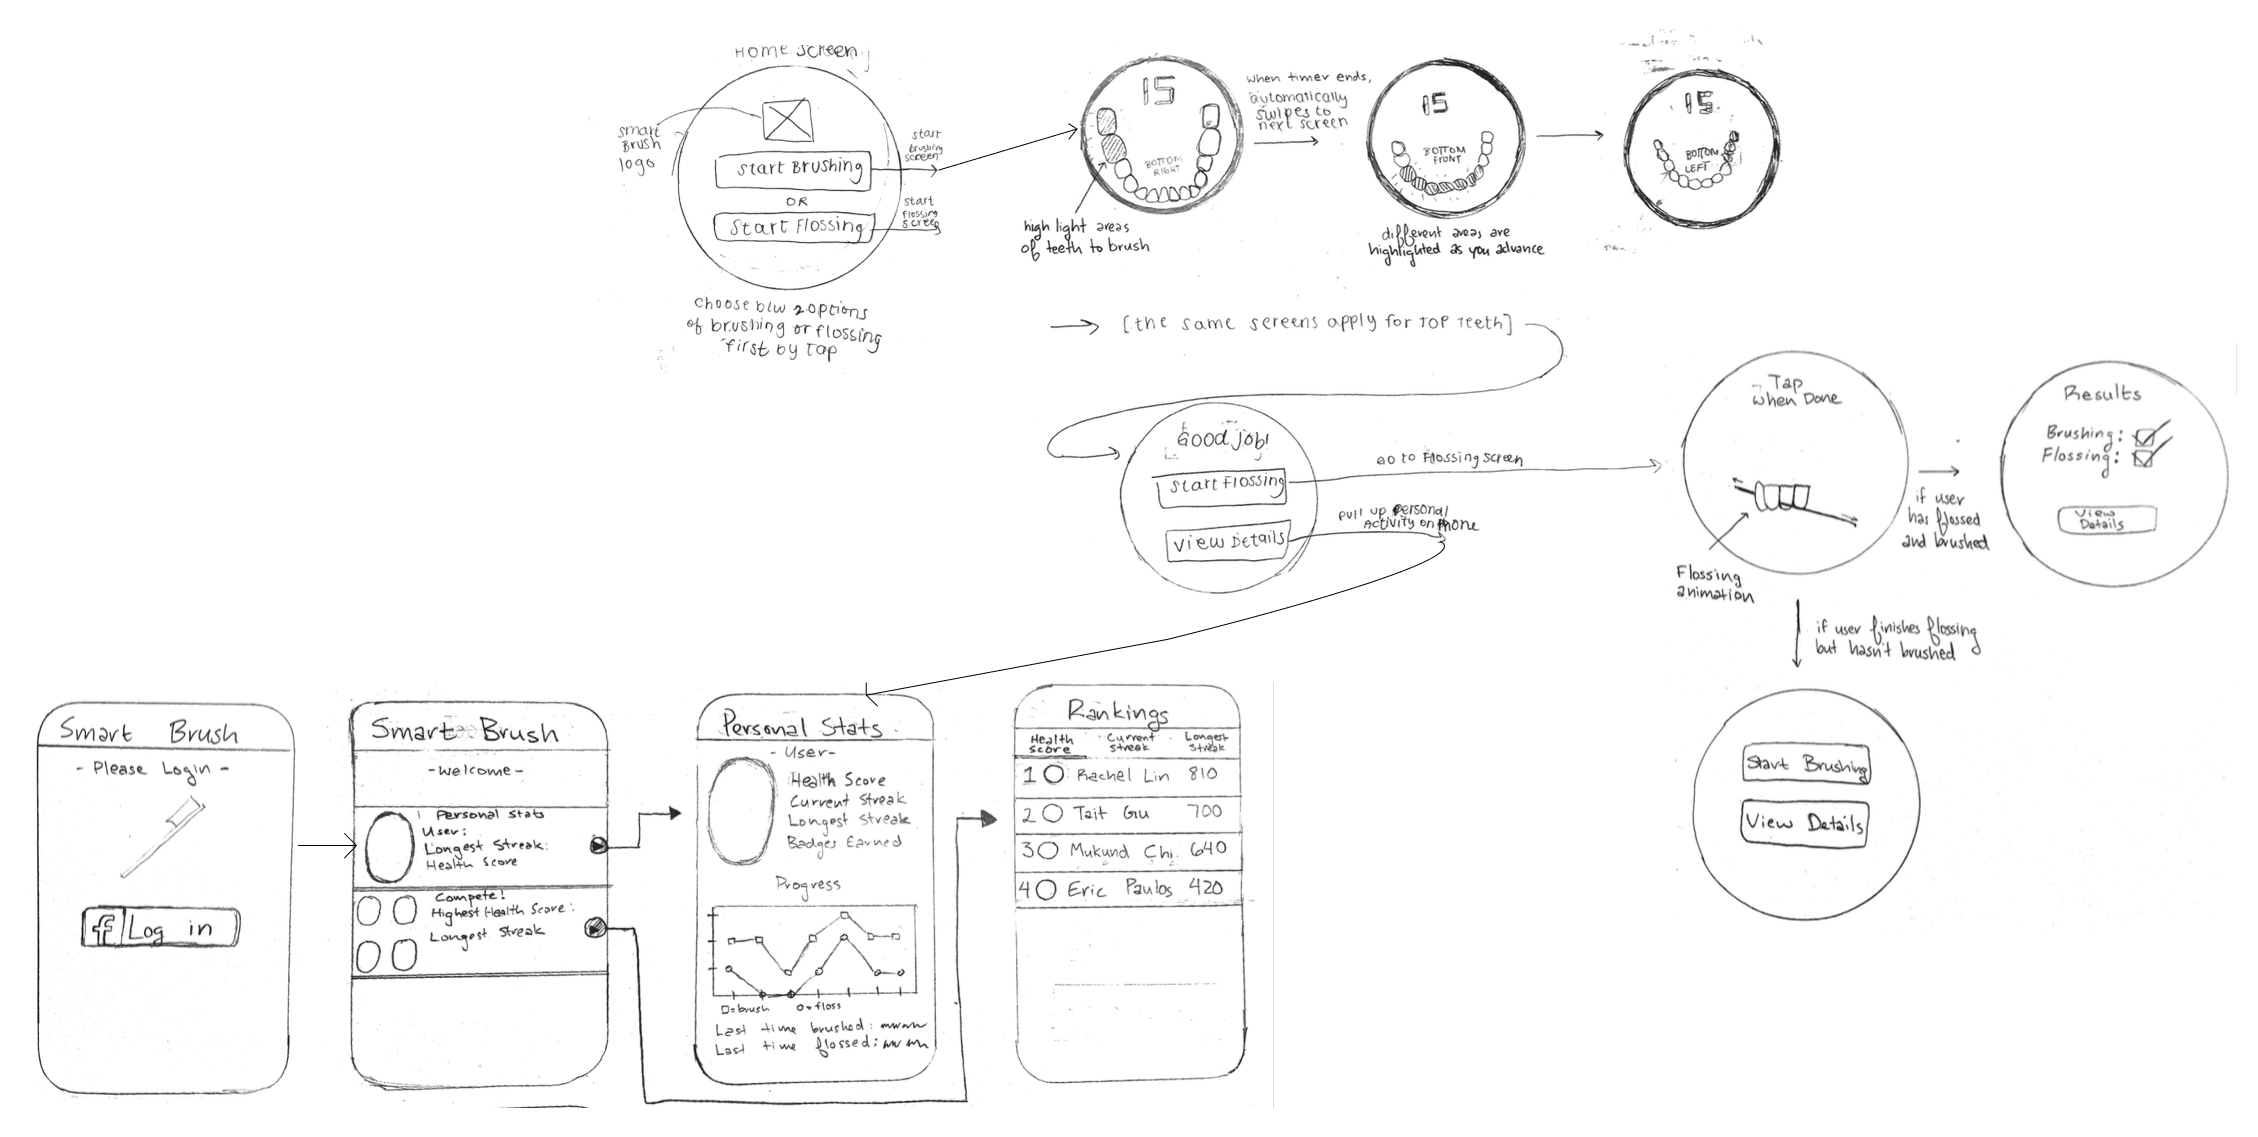 Home screen
smart
Brush
logo
Start Brushing
OR
Start Flossing
start
brushing
screen
start
flossing
screen
Choose b/w 2 options
of brushing or flossing
first by Tap
15
BOTTOM
RIGHT
high light areas
of teeth to brush
when timer ends,
automatically
swipes to
next screen
15
BOTTOM
FRONT
different areas are
highlighted as you advance
15
BOTTOM
LEFT
[the same screens apply for Top Teeth]
Good job!
Start Flossing
View Details
Go to Flossing screen
Pull up personal
Activity on Phone
Tap
when Done
Flossing
animation
if user
has flossed
and brushed
Results
Brushing:
Flossing:
View
Details
if user finishes flossing
but hasn't brushed
Start Brushing
View Details
Smart Brush
- Please Login -
f Log in
Smart Brush
- Welcome -
Personal Stats
User:
Longest Streak:
Health Score
Compete!
Highest Health Score:
Longest Streak
Personal Stats
- User -
Health Score
Current Streak
Longest Streak
Badges Earned
Progress
□=brush o=floss
Last time brushed:
Last time flossed:
Rankings
Health Score
Current Streak
Longest Streak
1 Rachel Lin 810
2 Tait Gu 700
3 Mukund Chi. 640
4 Eric Paulos 420